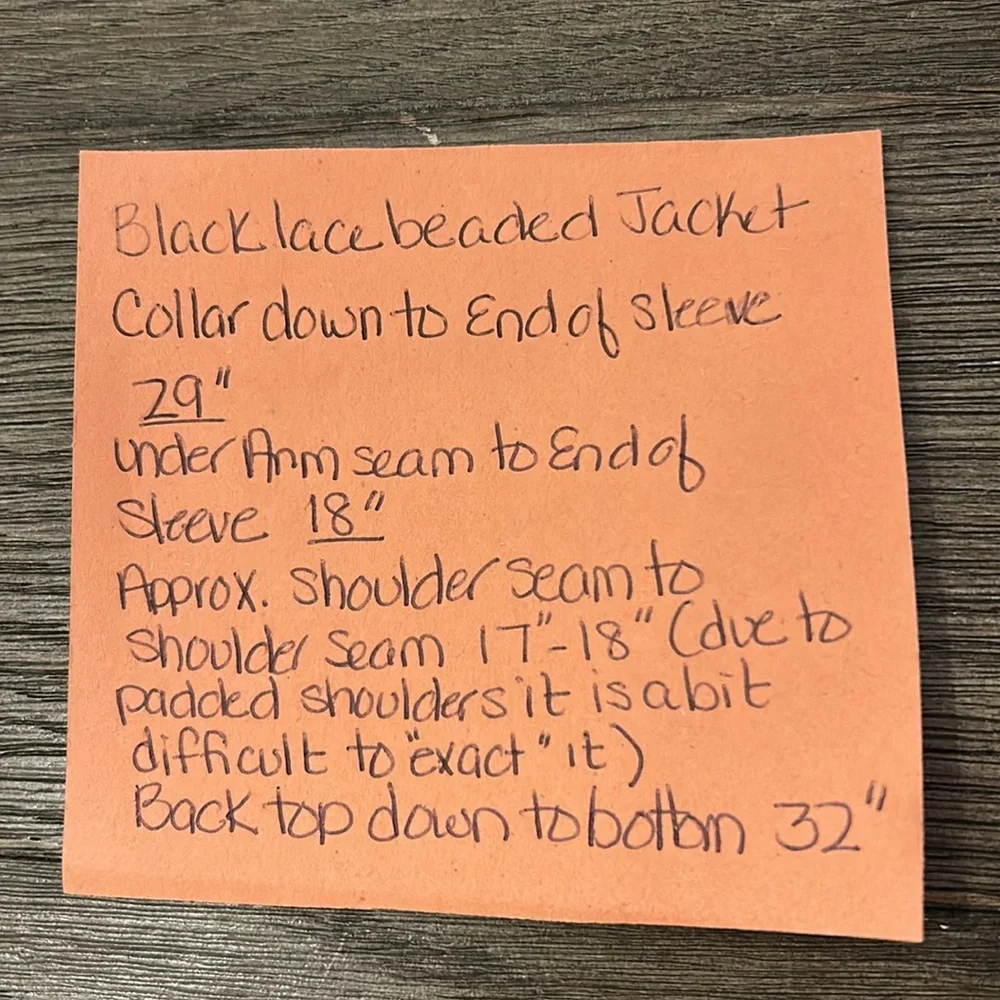 Black lace beaded Jacket
Collar down to End of sleeve
29"
under Arm seam to End of
Sleeve 18"
Approx. shoulder seam to
shoulder seam 17"-18" (due to
padded shoulders it is a bit
difficult to "exact" it)
Back top down to bottom 32"